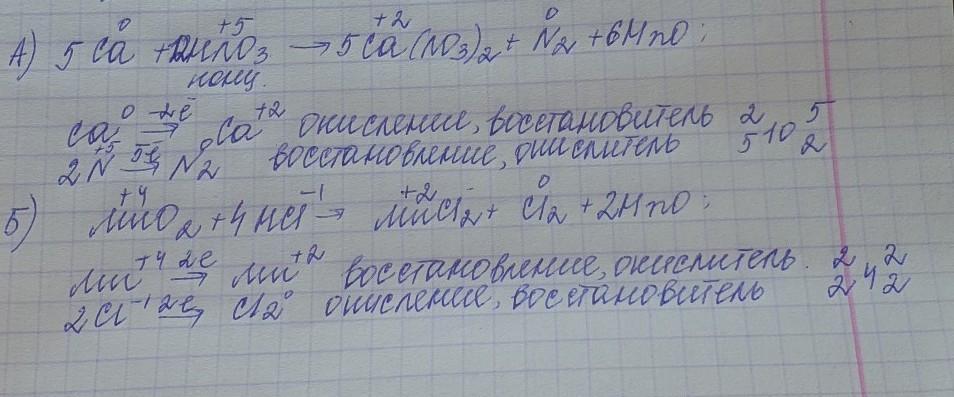 А) 5Ca⁰ + 12HN⁺⁵O₃ → 5Ca⁺²(NO₃)₂ + N₂⁰ + 6H₂O;
конц.
Ca⁰ -2ē→ Ca⁺² окисление, восстановитель 2 10 5
2N⁺⁵ 5ē→ N₂⁰ восстановление, окислитель 5 2
Б) Mn⁺⁴O₂ + 4HCl⁻¹ → Mn⁺²Cl₂ + Cl₂⁰ + 2H₂O;
Mn⁺⁴ 2ē→ Mn⁺² восстановление, окислитель. 2 4 2
2Cl⁻¹ 2ē→ Cl₂⁰ окисление, восстановитель 2 2